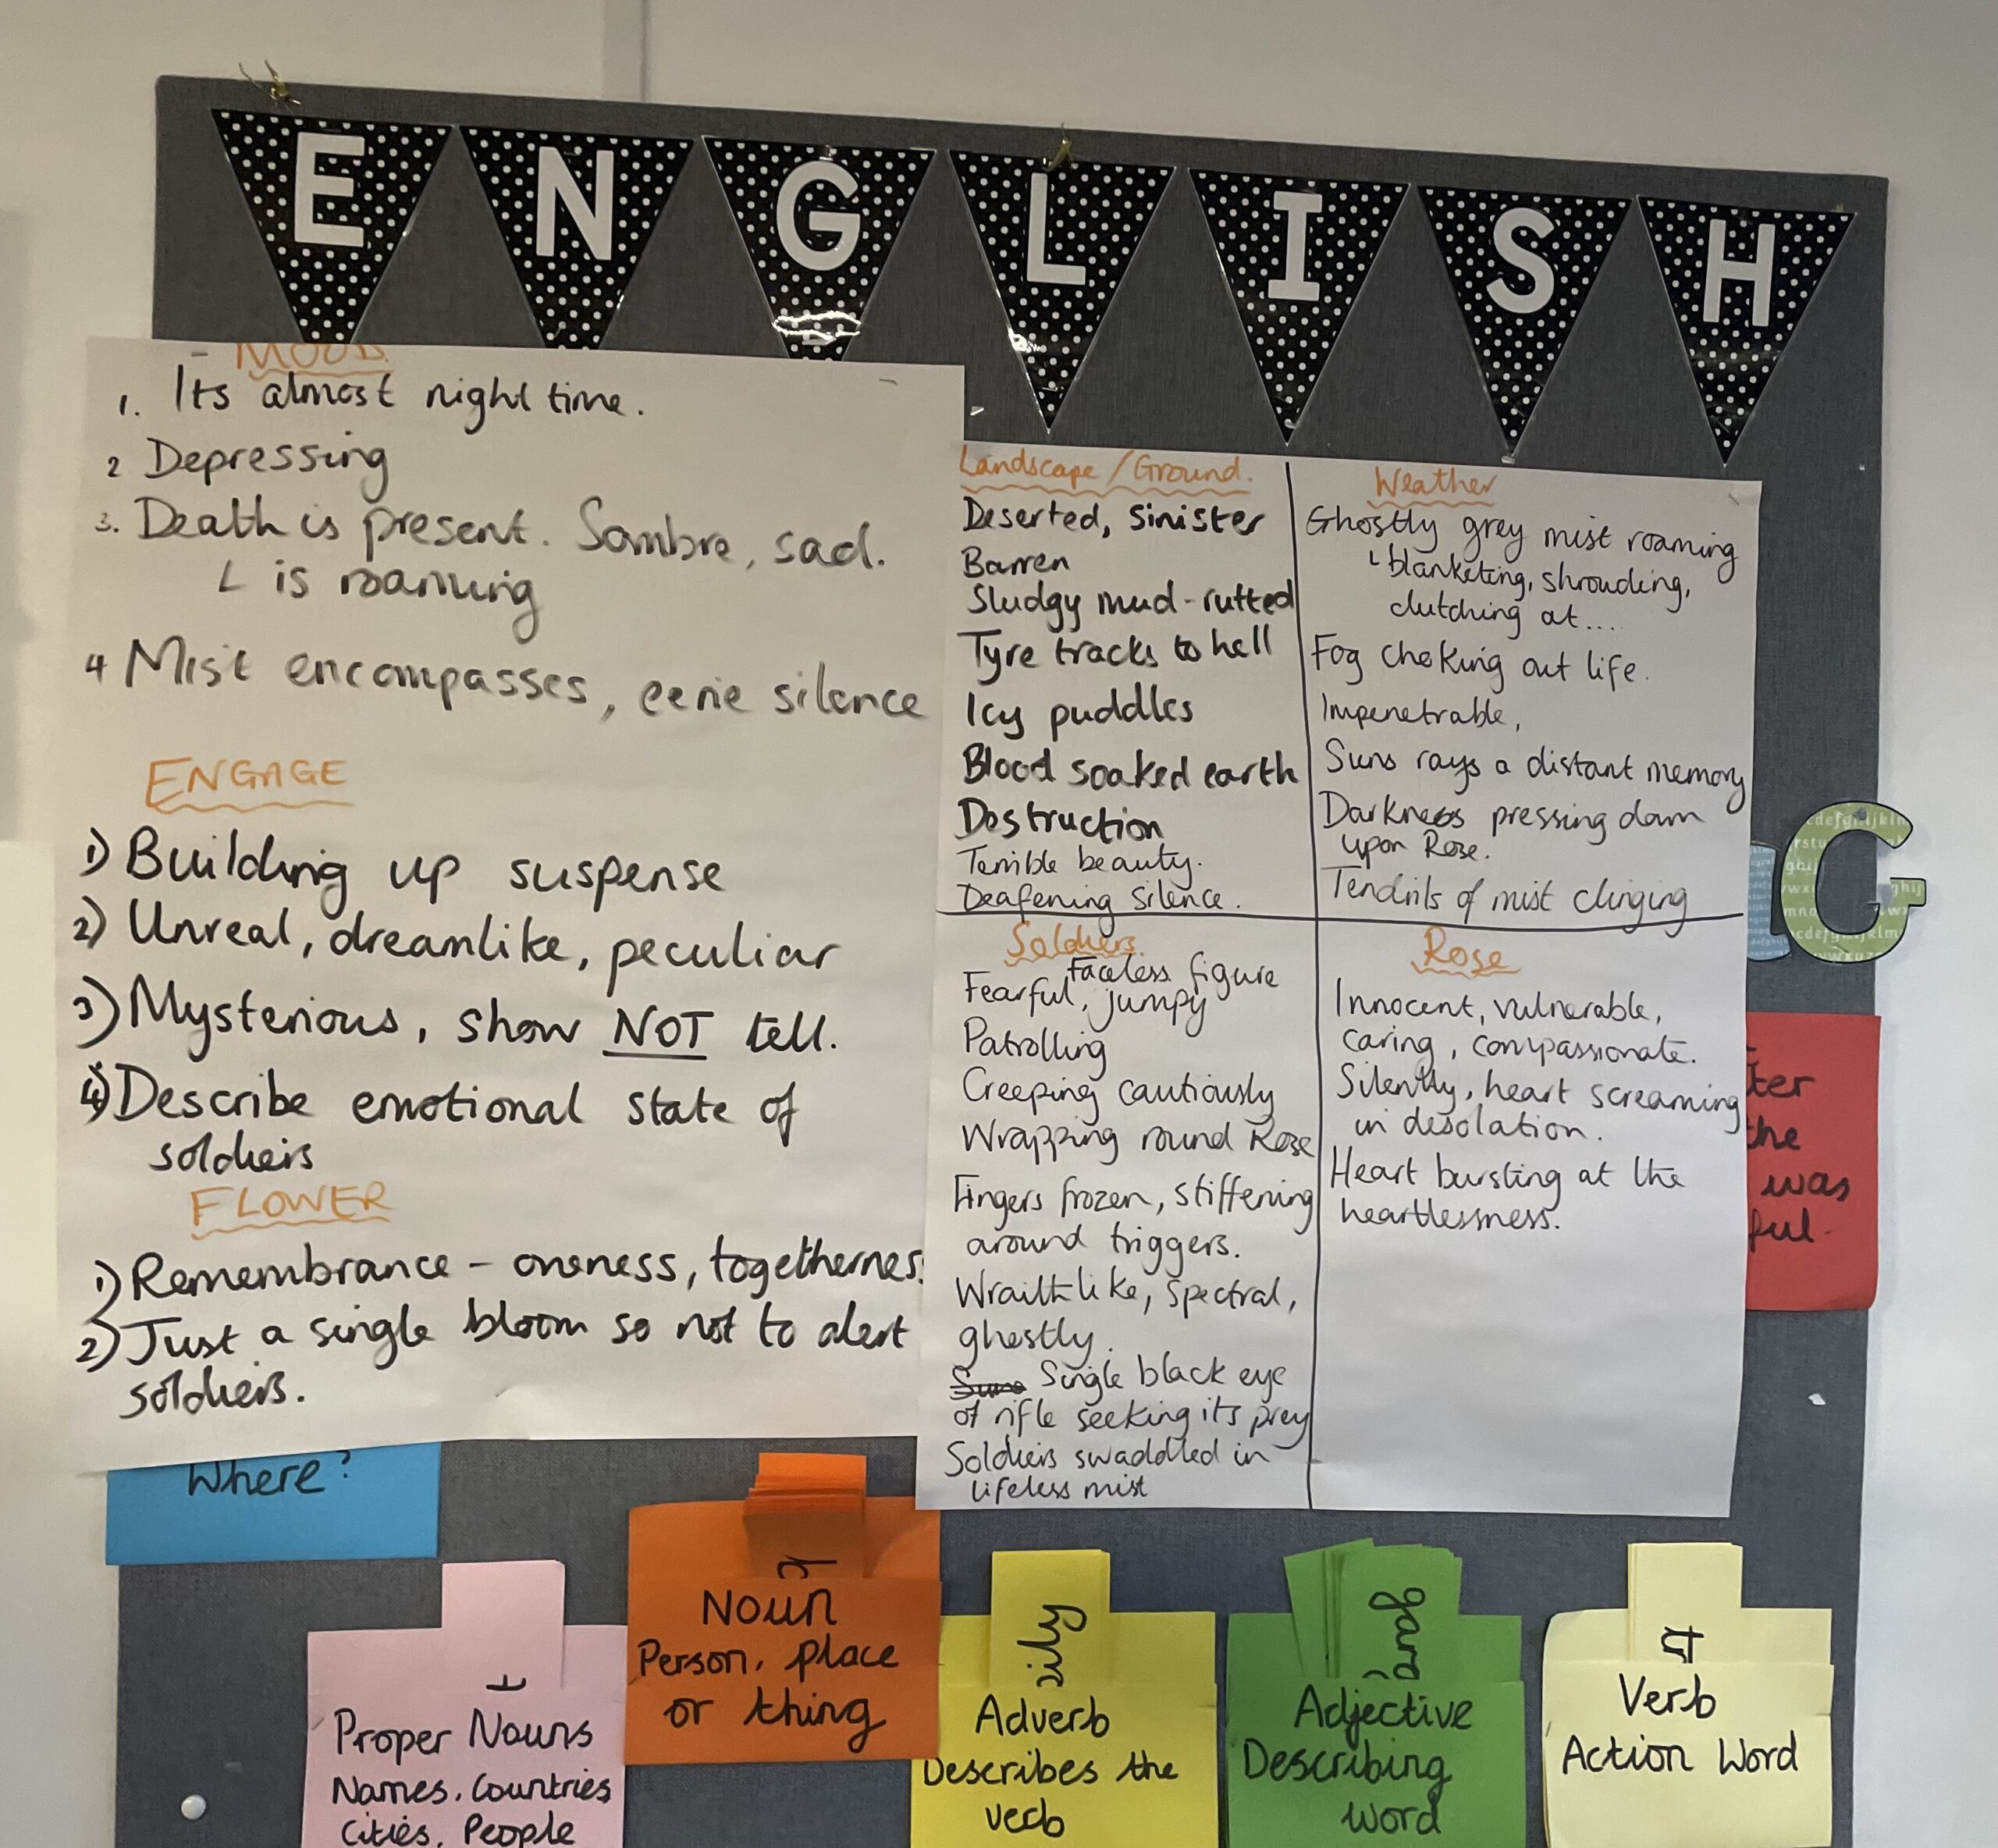 ENGLISH
MOOD
1. Its almost night time.
2 Depressing
3. Death is present. Sombre, sad.
L is roaming
4 Mist encompasses, eerie silence
ENGAGE
1) Building up suspense
2) Unreal, dreamlike, peculiar
3) Mysterious, show NOT tell.
4) Describe emotional state of
soldiers
FLOWER
1) Remembrance - oneness, togetherness
2) Just a single bloom so not to alert
soldiers.
Landscape / Ground.
Deserted, sinister
Barren
Sludgy mud-rutted
Tyre tracks to hell
Icy puddles
Blood soaked earth
Destruction
Terrible beauty.
Deafening silence.
Weather
Ghostly grey mist roaming
L blanketing, shrouding,
clutching at....
Fog choking out life.
Impenetrable,
Suns rays a distant memory
Darkness pressing down
upon Rose.
Tendrils of mist clinging
Soldiers
Faceless figure
Fearful, jumpy
Patrolling
Creeping cautiously
Wrapping round Rose
Fingers frozen, stiffening
around triggers.
Wraithlike, spectral,
ghostly.
Single black eye
of rifle seeking its prey
Soldiers swaddled in
lifeless mist
Rose
Innocent, vulnerable,
caring, compassionate.
Silently, heart screaming
in desolation.
Heart bursting at the
heartlessness.
G
the
was
Where?
Proper Nouns
Names, Countries
Cities, People
Noun
Person, place
or thing
ily
Adverb
Describes the
verb
Adjective
Describing
word
Verb
Action Word